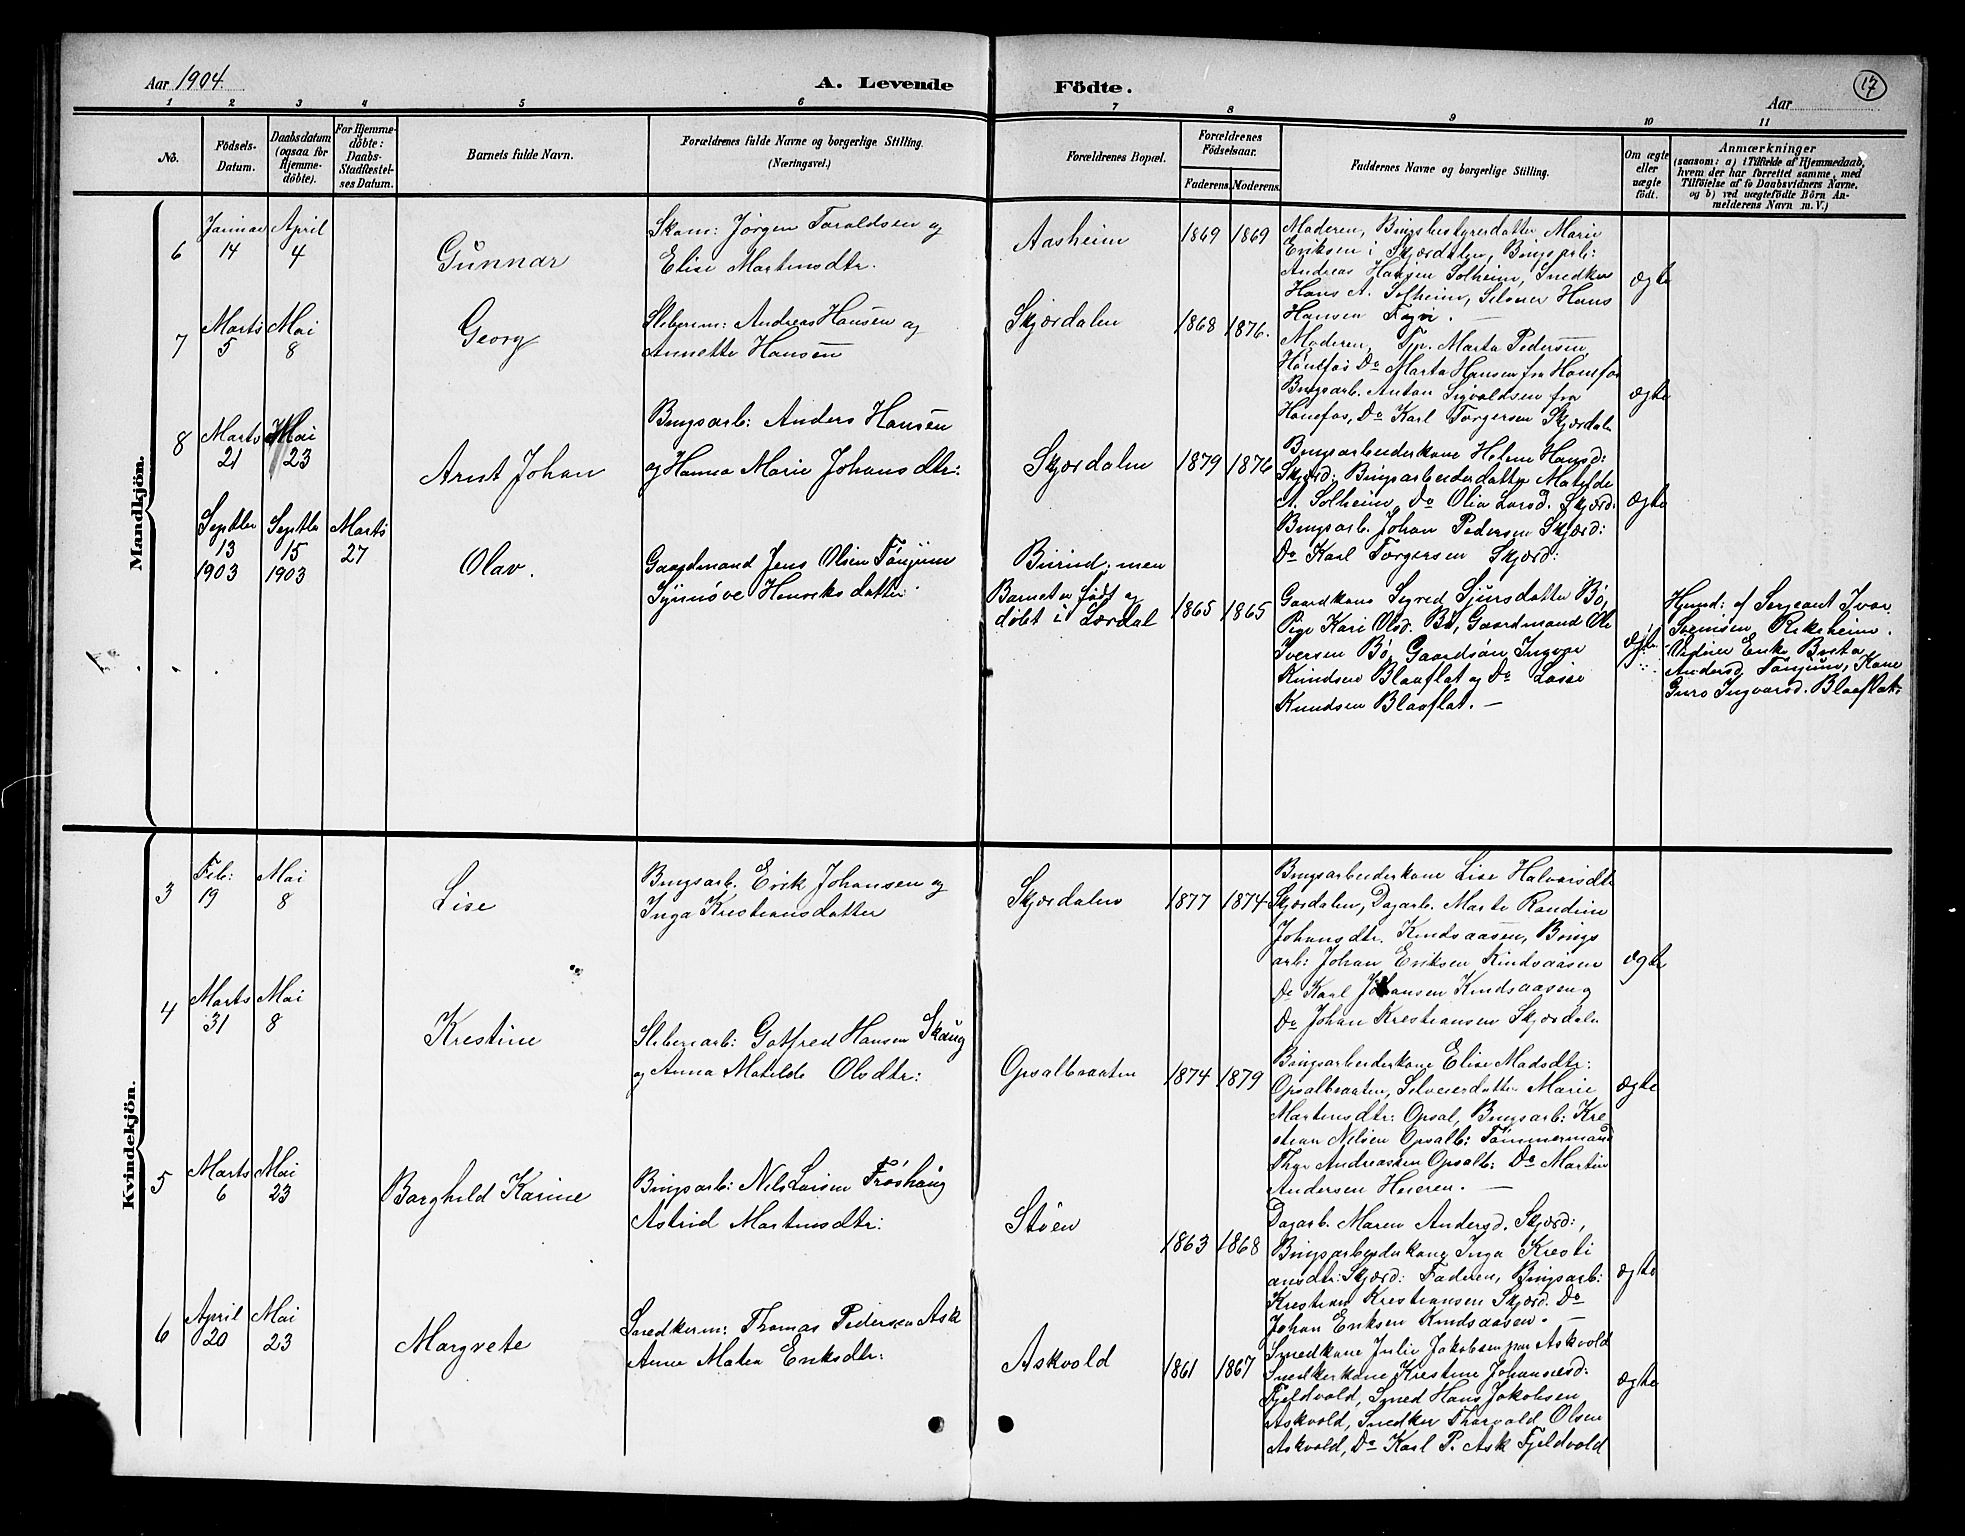 Aar 1904.
A. Levende Födte.
Aar
17
1 2 3 4 5 6 7 8 9 10 11
No.
Födsels-Datum.
Daabsdatum (ogsaa for Hjemmedöbte).
For Hjemmedöbte: Daabs-Stadfæstelses Datum.
Barnets fulde Navn.
Forældrenes fulde Navne og borgerlige Stilling. (Næringsvei.)
Forældrenes Bopæl.
Forældrenes Födselsaar.
Faderens. Moderens.
Faddernes Navne og borgerlige Stilling.
Om ægte eller uægte födt.
Anmærkninger
(saasom: a) i Tilfælde af Hjemmedaab, hvem der har forrettet samme, med Tilföielse af to Daabsvidners Navne, og b) ved uægtefödte Börn Anmelderens Navn m. V.)
Mandkjön.
6
Januar 14
April 4
Gunnar
Skom: Jørgen Taraldsen og
Elise Martinsdtr.
Aasheim
1869 1869
Moderen, Brugsbestyrerdatter Marie
Eriksen i Skjærdalen, Brugsarb:
Andreas Hansen Solheim, Snedker
Hans A. Solheim, Selveier Hans
Hansen
ægte
7
Marts 5
Mai 8
Georg
Sliberim: Andreas Hansen og
Annette Hansen
Skjærdalen
1868 1876.
Moderen, Tjp. Marta Pedersen
Hønefos Do Marta Hansen fra Hønefos
Brugsarb. Anton Sigvaldsen fra
Hønefos, Do Karl Torgersen Skjærdal.
ægte
8
Marts 21
Mai 23
Arnt Johan
Brugsarb: Anders Hansen
og Hanna Marie Johansdtr:
Skjærdalen
1879 1876
Brugsarbeiderkone Helene Hansd:
Skjærd: Brugsarbeiderdatter Matilde
A. Solheim, Do Olia Larsd. Skjærd:
Brugsarb. Johan Pedersen Skjærd:
Do Karl Torgersen Skjærd:
ægte
Septbr 13 1903
Septbr 15 1903
Marts 27
Olav.
Gaardmand Jens Olsen Tønjum
Synnøve Henriksdatter
Buind; men
Barnet er født og
døbt i Lærdal
1865 1865
Gaardkone Sigred Sjursdatter Bø,
Pige Kari Olsd. Bø, Gaardmand Ole
Iversen Bø, Gaardsøn Ingvar
Knudsen Blaaflat og Do Lasse
Knudsen Blaaflat. —
ægte
Hjemd: af Sergeant Ivar
Svensen
Vidner Enke Brita
Andersd Tønjum, Kone
Guro Ingvarsd. Blaaflat.
Kvindekjön.
3
Feb: 19
Mai 8
Lise
Brugsarb. Erik Johansen og
Inga Kristiansdatter
Skjærdalen
1877 1874
Brugsarbeiderkone Lise Halvorsdtr
Skjærdalen, Dagarb. Marte Randine
Johansdtr. Knudsaasen, Brugs
arb: Johan Eriksen Knudsaasen
Do Karl Johansen Knudsaasen og
Do Johan Kristiansen Skjærdalen
ægte
4
Marts 31
Mai 8
Krestine
Sliberiarb: Gotfred Hansen Skaug
og Anna Matilde Olsdtr:
Opsalbraaten
1874 1879
Brugsarbeiderkone Elise Madsdtr:
Opsalbraaten, Selveierdatter Marie
Martinsdtr: Opsal, Brugsarb: Kre
stian Nilsen Opsalb: Tømmermand
Thge Andreassen Opsalb: Do Martin
Andersen Heieren. —
ægte
5
Marts 6
Mai 23
Borghild Karine
Brugsarb: Nils Larsen Frøshaug
Astrid Martinsdtr:
Støen
1863 1868
Dagarb. Maren Andersd. Skjærd:,
Brugsarbeiderkone Inga Kresti
ansdtr: Skjærd: Faderen, Brugsarb:
Krestian Kristiansen Skjærd. Do
Johan Eriksen Knudsaasen. —
ægte
6
April 20
Mai 23
Margrete
Snedkerm: Thomas Pedersen Ask
Anne Matea Eriksdtr:
Askvold
1861 1867
Smedkone Julie Jakobsen paa Askvold
Snedkerkone Krestine Johannesd:
Fjeldvold, Smed Hans Jakobsen
Askvold, Snedker Thorvald Olsen
Askvold, Do Karl P. Ask Fjeldvold
ægte